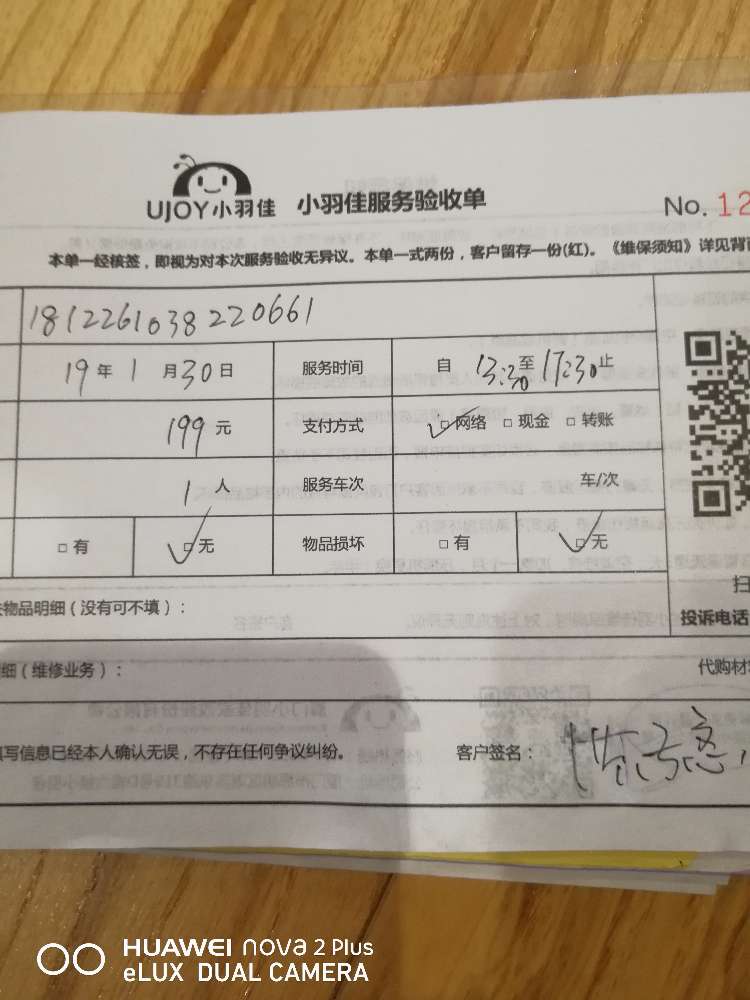 UJOY小羽佳 小羽佳服务验收单 No. 12
本单一经核签，即视为对本次服务验收无异议。本单一式两份，客户留存一份(红)。《维保须知》详见背
1812261038220661
19年1月30日 服务时间 自 13:30至17:30止
199元 支付方式 ☑网络 □现金 □转账
1人 服务车次 车/次
□有 ☑无 物品损坏 □有 ☑无
物品明细（没有可不填）： 扫
投诉电话
细（维修业务）： 代购材
写信息已经本人确认无误，不存在任何争议纠纷。 客户签名：
HUAWEI nova 2 Plus
eLUX DUAL CAMERA